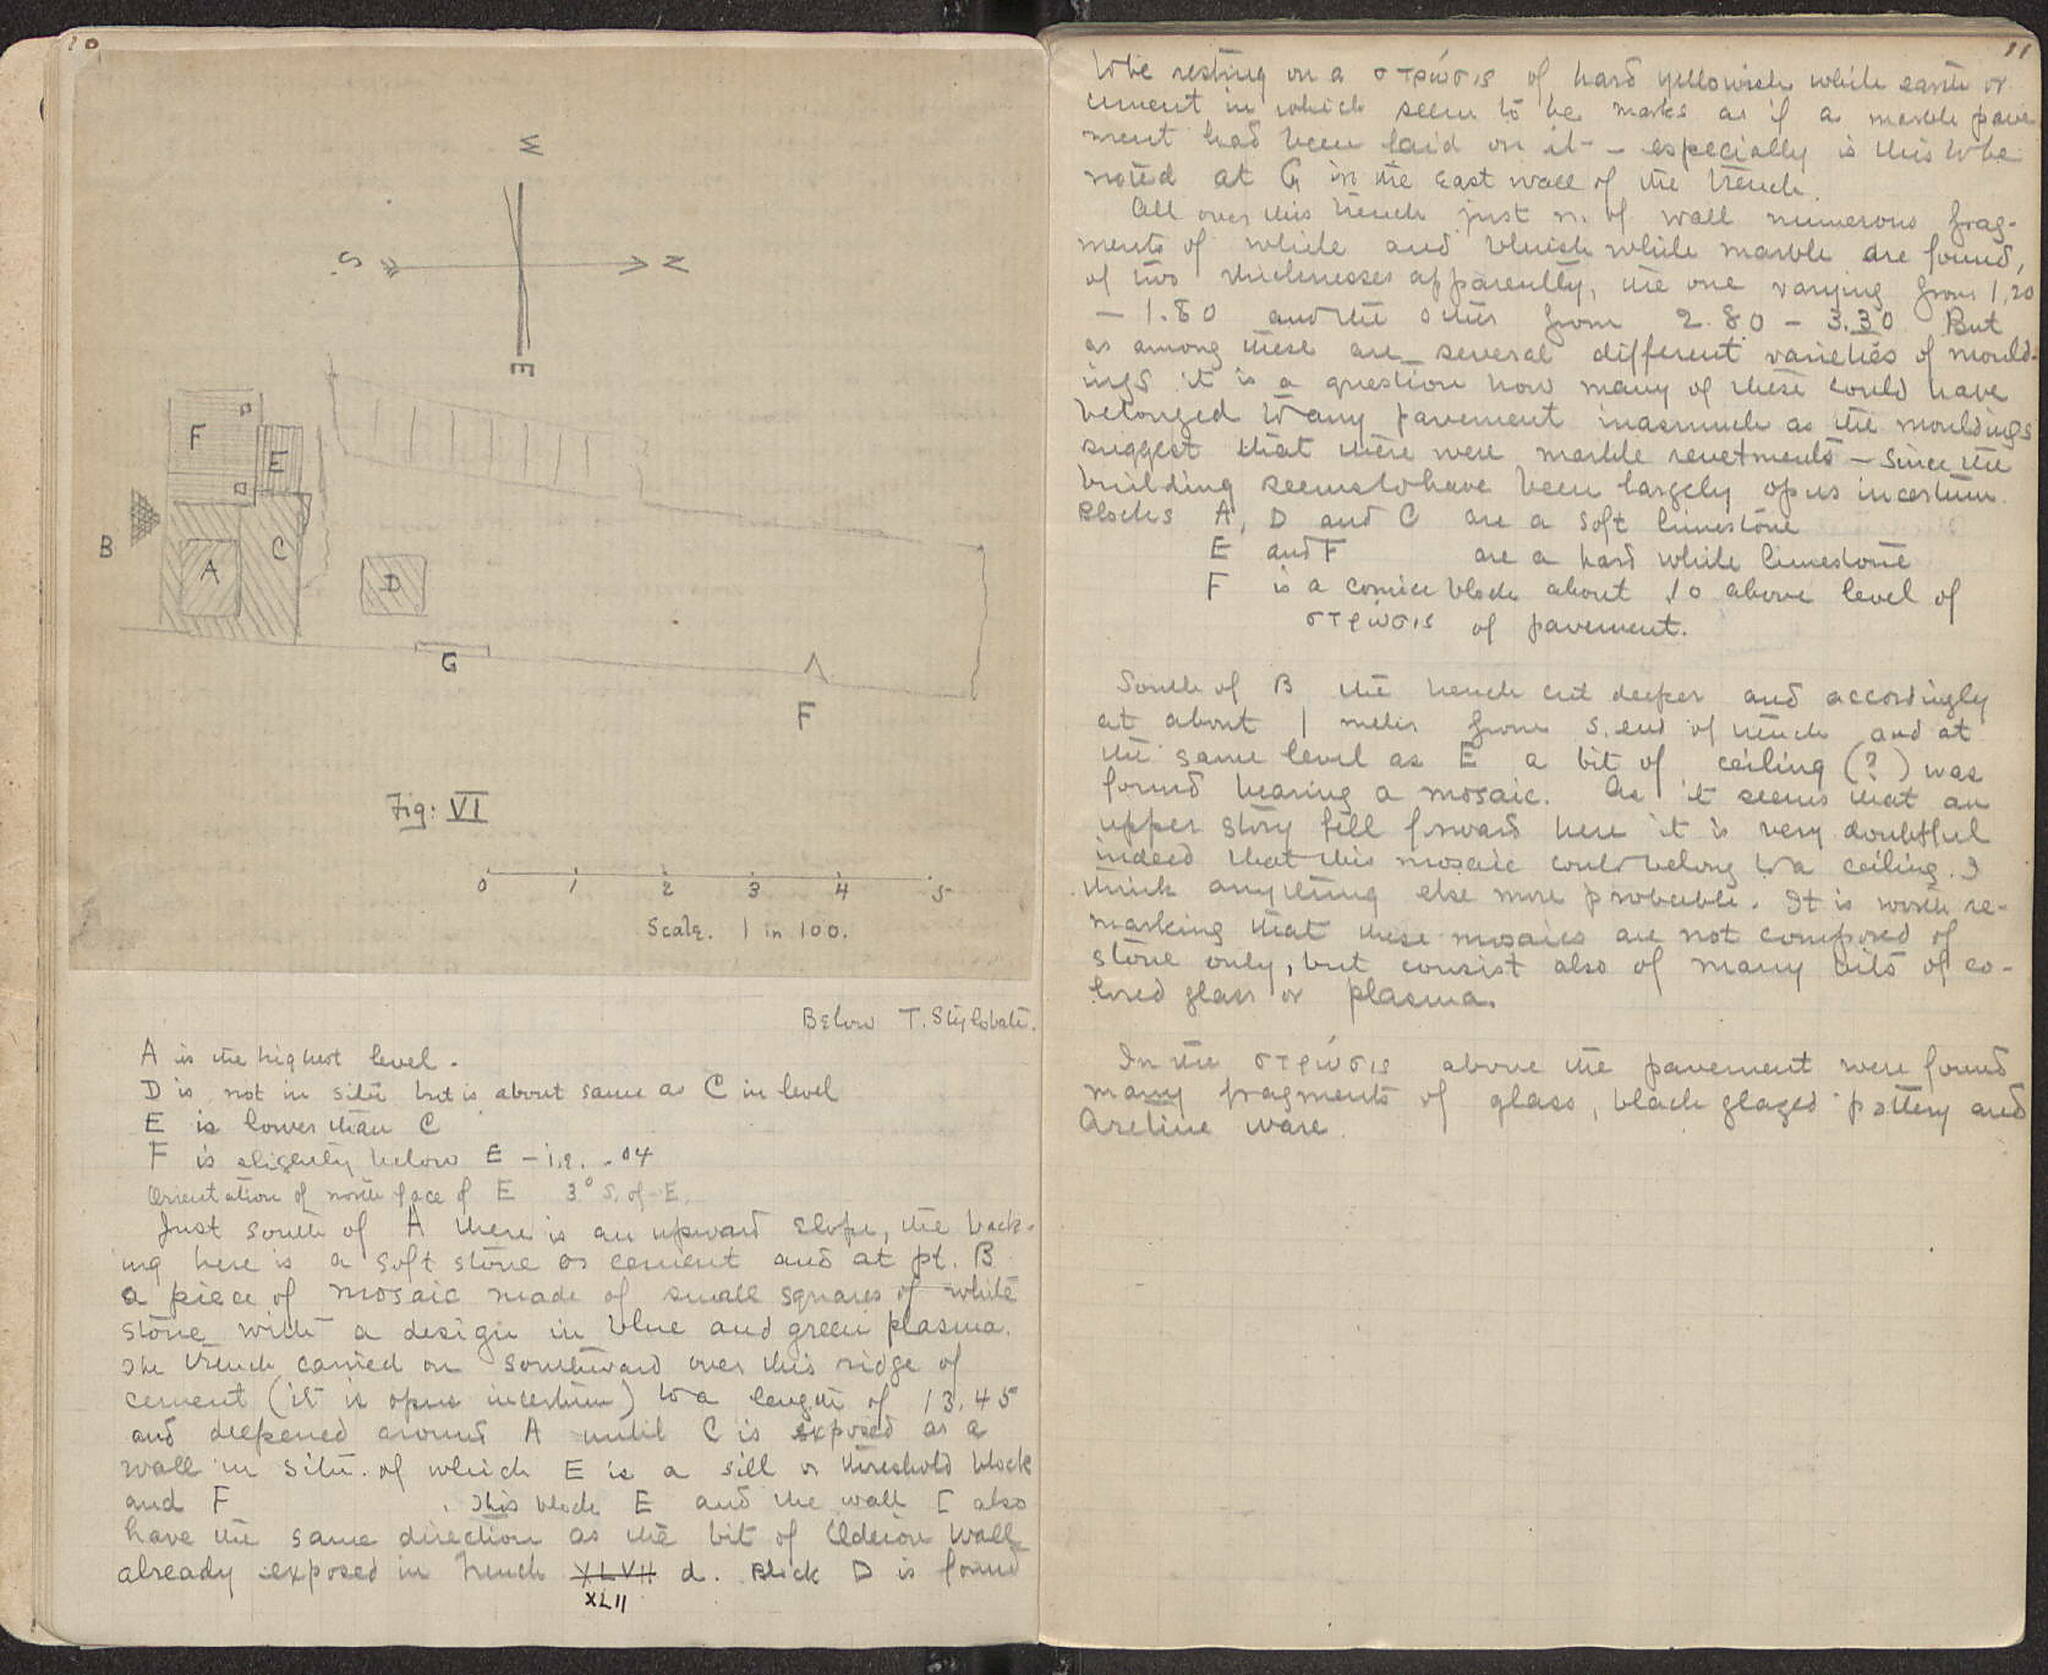 10
W
S.
N
E
F
E
B
C
A
D
G
F
Fig: VI
0 1 2 3 4 5
Scale. 1 in 100.
Below T. Stylobate.
A is the highest level.
D is not in situ but is about same as C in level
E is lower than C
F is slightly below E – i.e. .04
Orientation of north face of E 3° S. of E.
Just south of A there is an upward slope, the back-
ing here is a soft stone or cement and at pt. B
a piece of mosaic made of small squares of white
stone with a design in blue and green plasma.
The trench carried on southward over this ridge of
cement (it is opus incertum) to a length of 13.45
and deepened around A until C is exposed as a
wall in situ. of which E is a sill or threshold block
and F . This block E and the wall C also
have the same direction as the bit of Odeion wall
already exposed in trench XLVII d. Block D is found
XLII
11
to be resting on a στρώσις of hard yellowish white earth or
cement in which seem to be marks as if a marble pave
ment had been laid on it – especially is this to be
noted at G in the east wall of the trench.
All over this trench just n. of wall numerous frag-
ments of white and bluish white marble are found,
of two thicknesses apparently, the one varying from 1.20
– 1.80 and the other from 2.80 – 3.30 But
as among these are several different varieties of mould-
ings it is a question how many of these could have
belonged to any pavement inasmuch as the mouldings
suggest that there were marble revetments – since the
building seems to have been largely opus incertum.
Blocks A, D and C are a soft limestone
E and F are a hard white limestone
F is a cornice block about .10 above level of
στρώσις of pavement.
South of B the trench cut deeper and accordingly
at about 1 meter from S. end of trench and at
the same level as E a bit of ceiling (?) was
found bearing a mosaic. As it seems that an
upper story fell forward here it is very doubtful
indeed that this mosaic could belong to a ceiling. I
think anything else more probable. It is worth re-
marking that these mosaics are not composed of
stone only, but consist also of many bits of co-
lored glass or plasma.
In the στρώσις above the pavement were found
many fragments of glass, black glazed pottery and
Aretine ware.